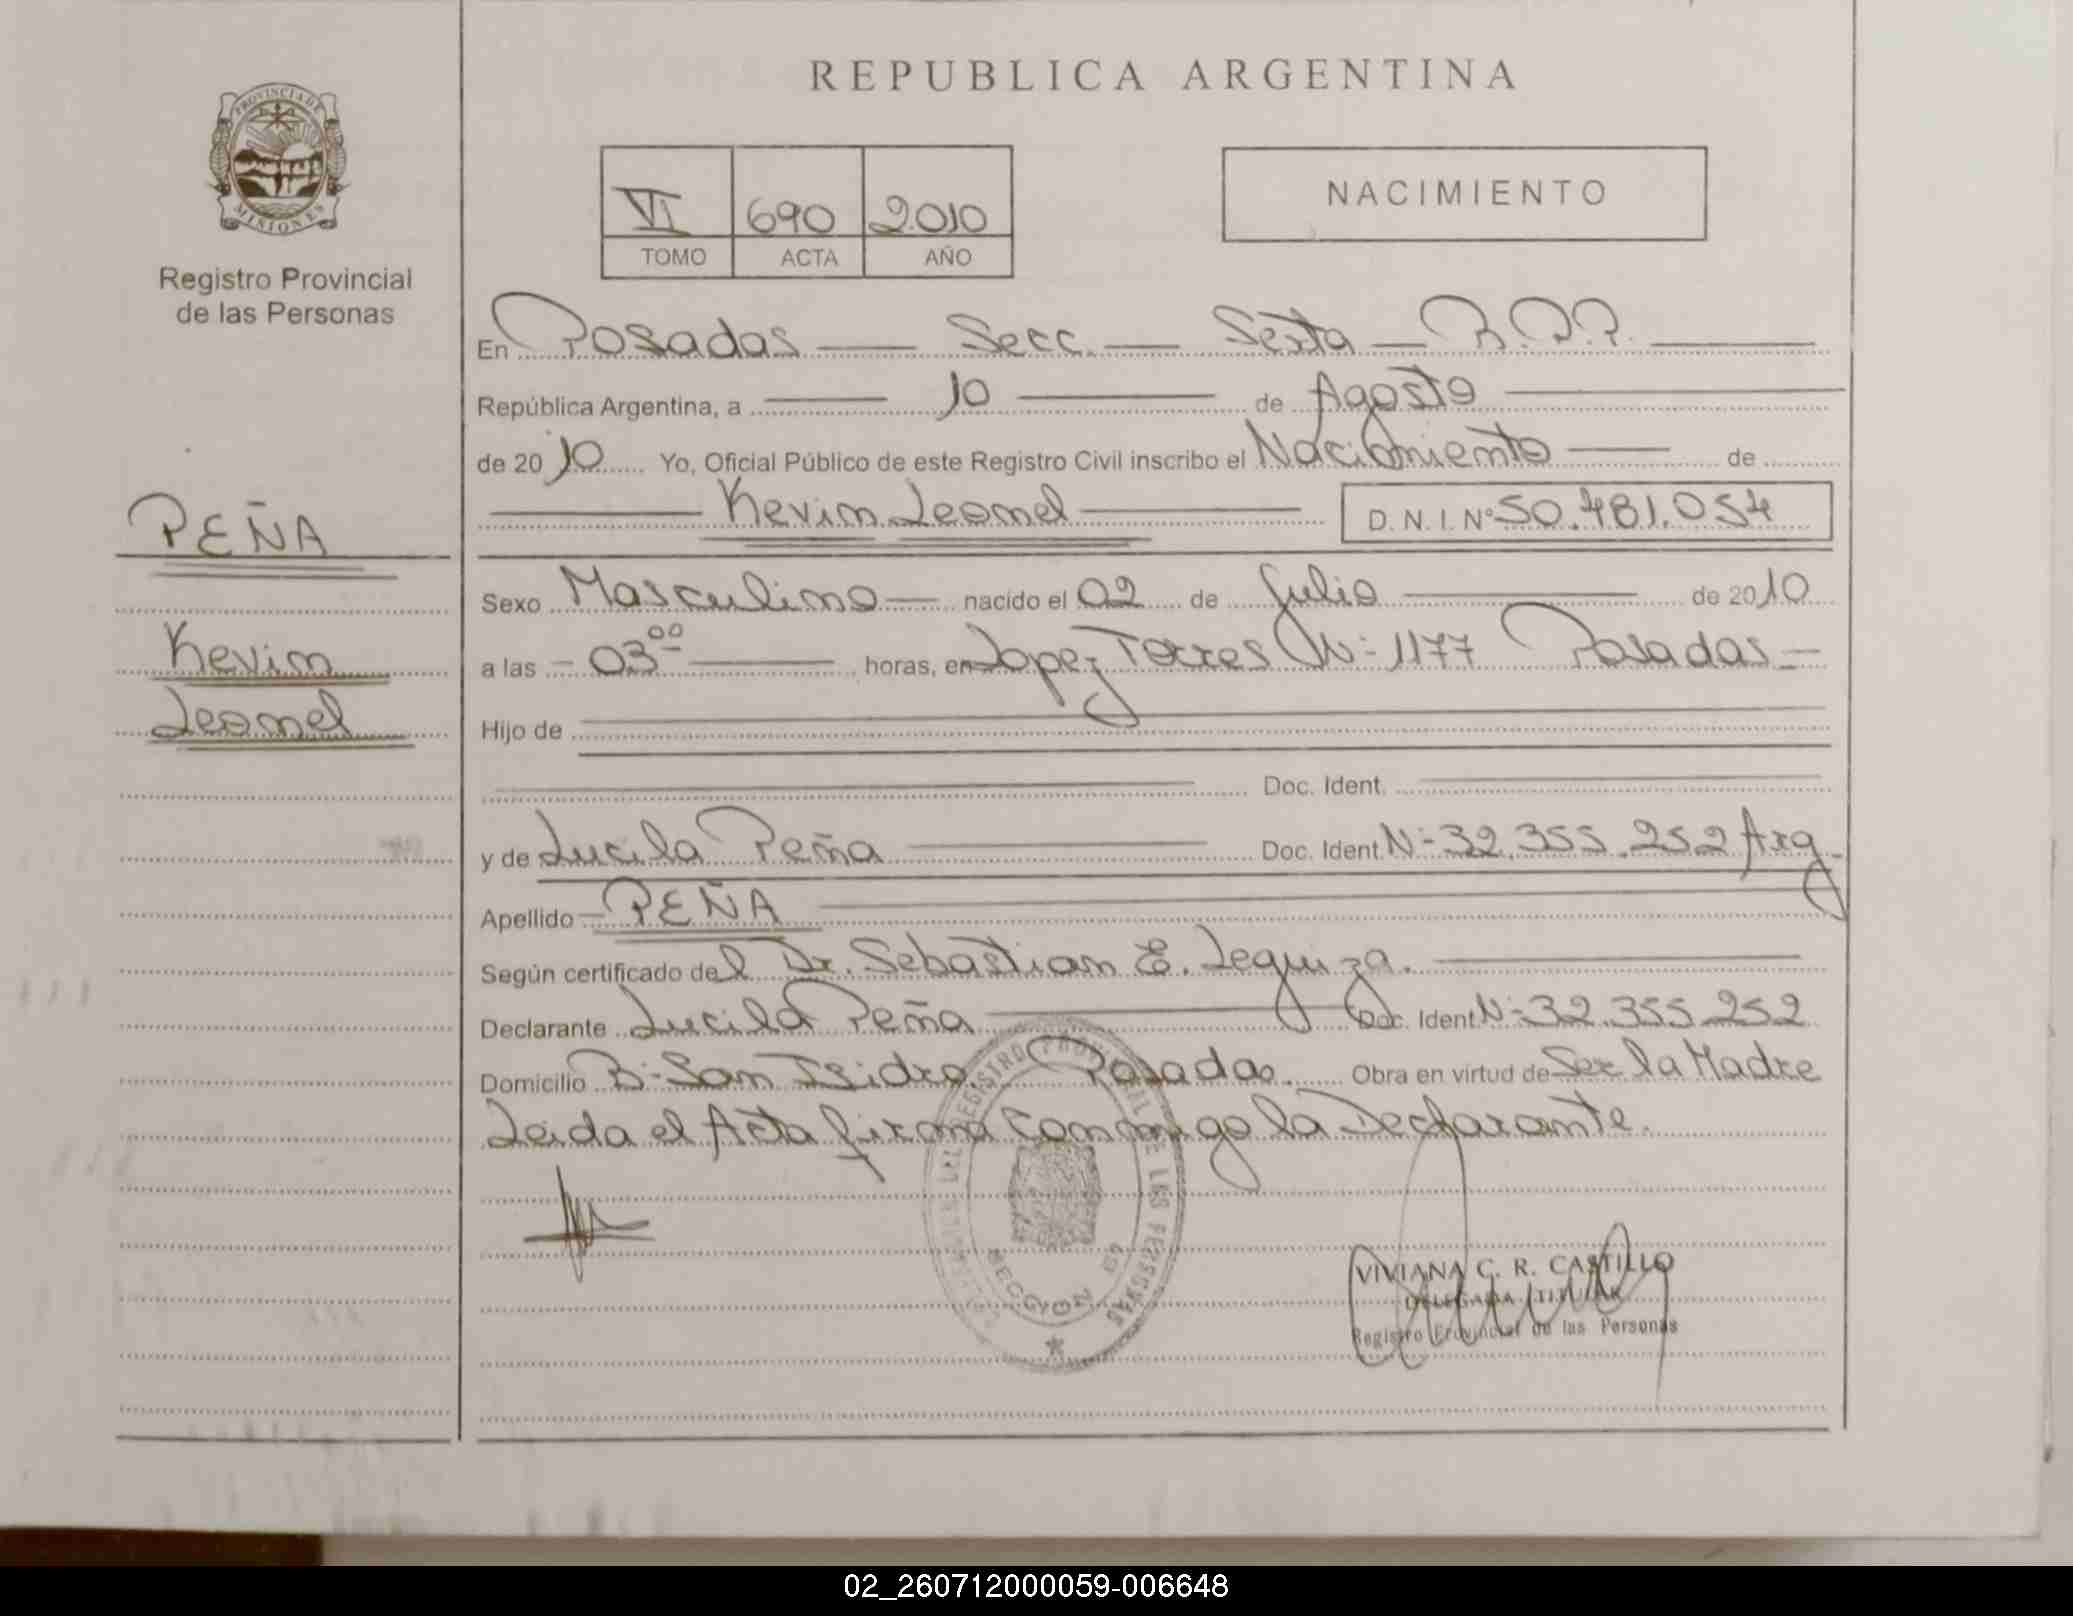 REPUBLICA ARGENTINA
PROVINCIA DE
MISIONES
Registro Provincial
de las Personas
VI 690 2.010
TOMO ACTA AÑO
NACIMIENTO
En Posadas — Secc. — Sexta — R.P.P.
República Argentina, a — 10 — de Agosto
de 2010 Yo, Oficial Público de este Registro Civil inscribo el Nacimiento — de
Kevin Leonel D.N.I. Nº 50.481.054
PEÑA
Kevin
Leonel
Sexo Masculino — nacido el 02 de Julio — de 2010
a las — 03 00 — horas, en Lopez Torres Nº 1177 Posadas —
Hijo de
Doc. Ident.
y de Lucila Peña Doc. Ident. Nº 32.355.252 Arg
Apellido — PEÑA
Según certificado del Dr. Sebastian E. Leguiza.
Declarante Lucila Peña Doc. Ident. Nº 32.355.252
Domicilio Bº San Isidro. Posadas. Obra en virtud de Ser la Madre
Leida el Acta firma conmigo la Declarante.
REGISTRO PROVINCIAL DE LAS PERSONAS
SECCION
VIVIANA C. R. CASTILLO
DELEGADA TITULAR
Registro Provincial de las Personas
02_260712000059-006648